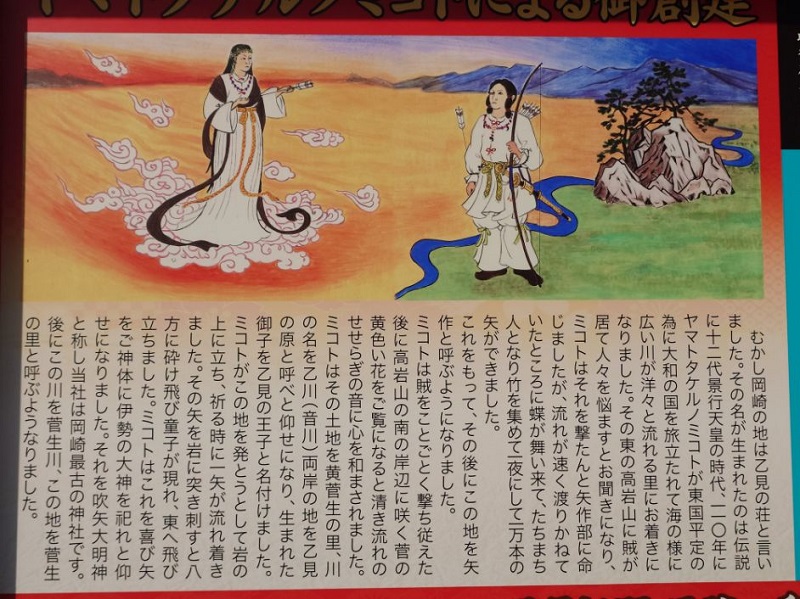 ヤマトタケルノミコトによる御創建
むかし岡崎の地は乙見の荘と言い
ました。その名が生まれたのは伝説
に十二代景行天皇の時代、一一〇年に
ヤマトタケルノミコトが東国平定の
為に大和の国を旅立たれて海の様に
広い川が洋々と流れる里にお着きに
なりました。その東の高岩山に賊が
居て人々を悩ますとお聞きになり、
ミコトはそれを撃たんと矢作部に命
じましたが、流れが速く渡りかねて
いたところに蝶が舞い来て、たちまち
人となり竹を集めて一夜にして一万本の
矢ができました。
これをもって、その後にこの地を矢
作と呼ぶようになりました。
ミコトは賊をことごとく撃ち従えた
後に高岩山の南の岸辺に咲く菅の
黄色い花をご覧になると清き流れの
せせらぎの音に心を和まされました。
ミコトはその土地を黄菅生の里、川
の名を乙川（音川）両岸の地を乙見
の原と呼べと仰せになり、生まれた
御子を乙見の王子と名付けました。
ミコトがこの地を発とうとして岩の
上に立ち、祈る時に一矢が流れ着き
ました。その矢を岩に突き刺すと八
方に砕け飛び童子が現れ、東へ飛び
立ちました。ミコトはこれを喜び矢
をご神体に伊勢の大神を祀れと仰
せになりました。それを吹矢大明神
と称し当社は岡崎最古の神社です。
後にこの川を菅生川、この地を菅生
の里と呼ぶようなりました。